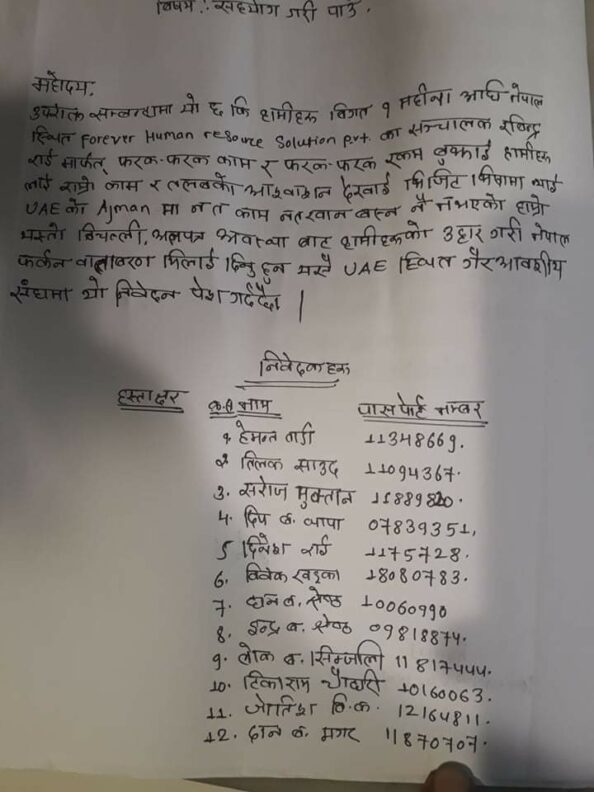 विषय :- सहयोग गरी पाउँ.
महोदय,
उपरोक्त सम्बन्धमा यो छ कि हामीहरु विगत १ महीना अघि नेपाल
स्थित Forever Human resource Solution pvt. का सञ्चालक रविन्द्र
राई मार्फत् फरक-फरक काम र फरक-फरक रकम बुझाई हामीहरु
लाई राम्रो काम र तलबको आश्वासन देखाई भिजिट भिषामा ल्याई
UAE को Ajman मा न त काम न त खान बस्न नै नभएको हाम्रो
यस्तो बिचल्ली, अलपत्र अवस्था बाट हामीहरुको उद्दार गरी नेपाल
फर्कन वातावरण मिलाई दिनु हुन यस UAE स्थित गैर आवाशीय
संघमा यो निवेदन पेश गर्दछौं ।
निवेदकहरु
हस्ताक्षर क्र.स नाम पासपोर्ट नम्बर
१ हेमन्त 11348669.
२ तिलक साउद 11094367.
3. सरोज मुक्तान
4. दिप ब. थापा 07839351,
5 दिनेश राई 1175728.
6. विवेक खड्का 18080783.
7. दान ब. श्रेष्ठ 10060990
8. इन्द्र ब. श्रेष्ठ 09818874.
9. लोक ब. सिन्जाली 11817444.
10. टिकाराम चौधरी 10160063.
11. जोतिश बि.क. 12164811.
12. दान ब. मगर 11870707.